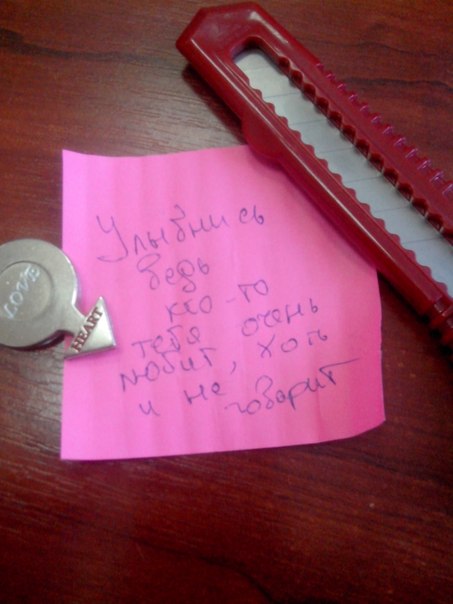 Улыбнись
ведь
кто-то
тебя очень
любит, хоть
и не говорит
LOVE
HEART